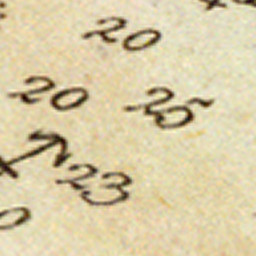 20
20 25
23